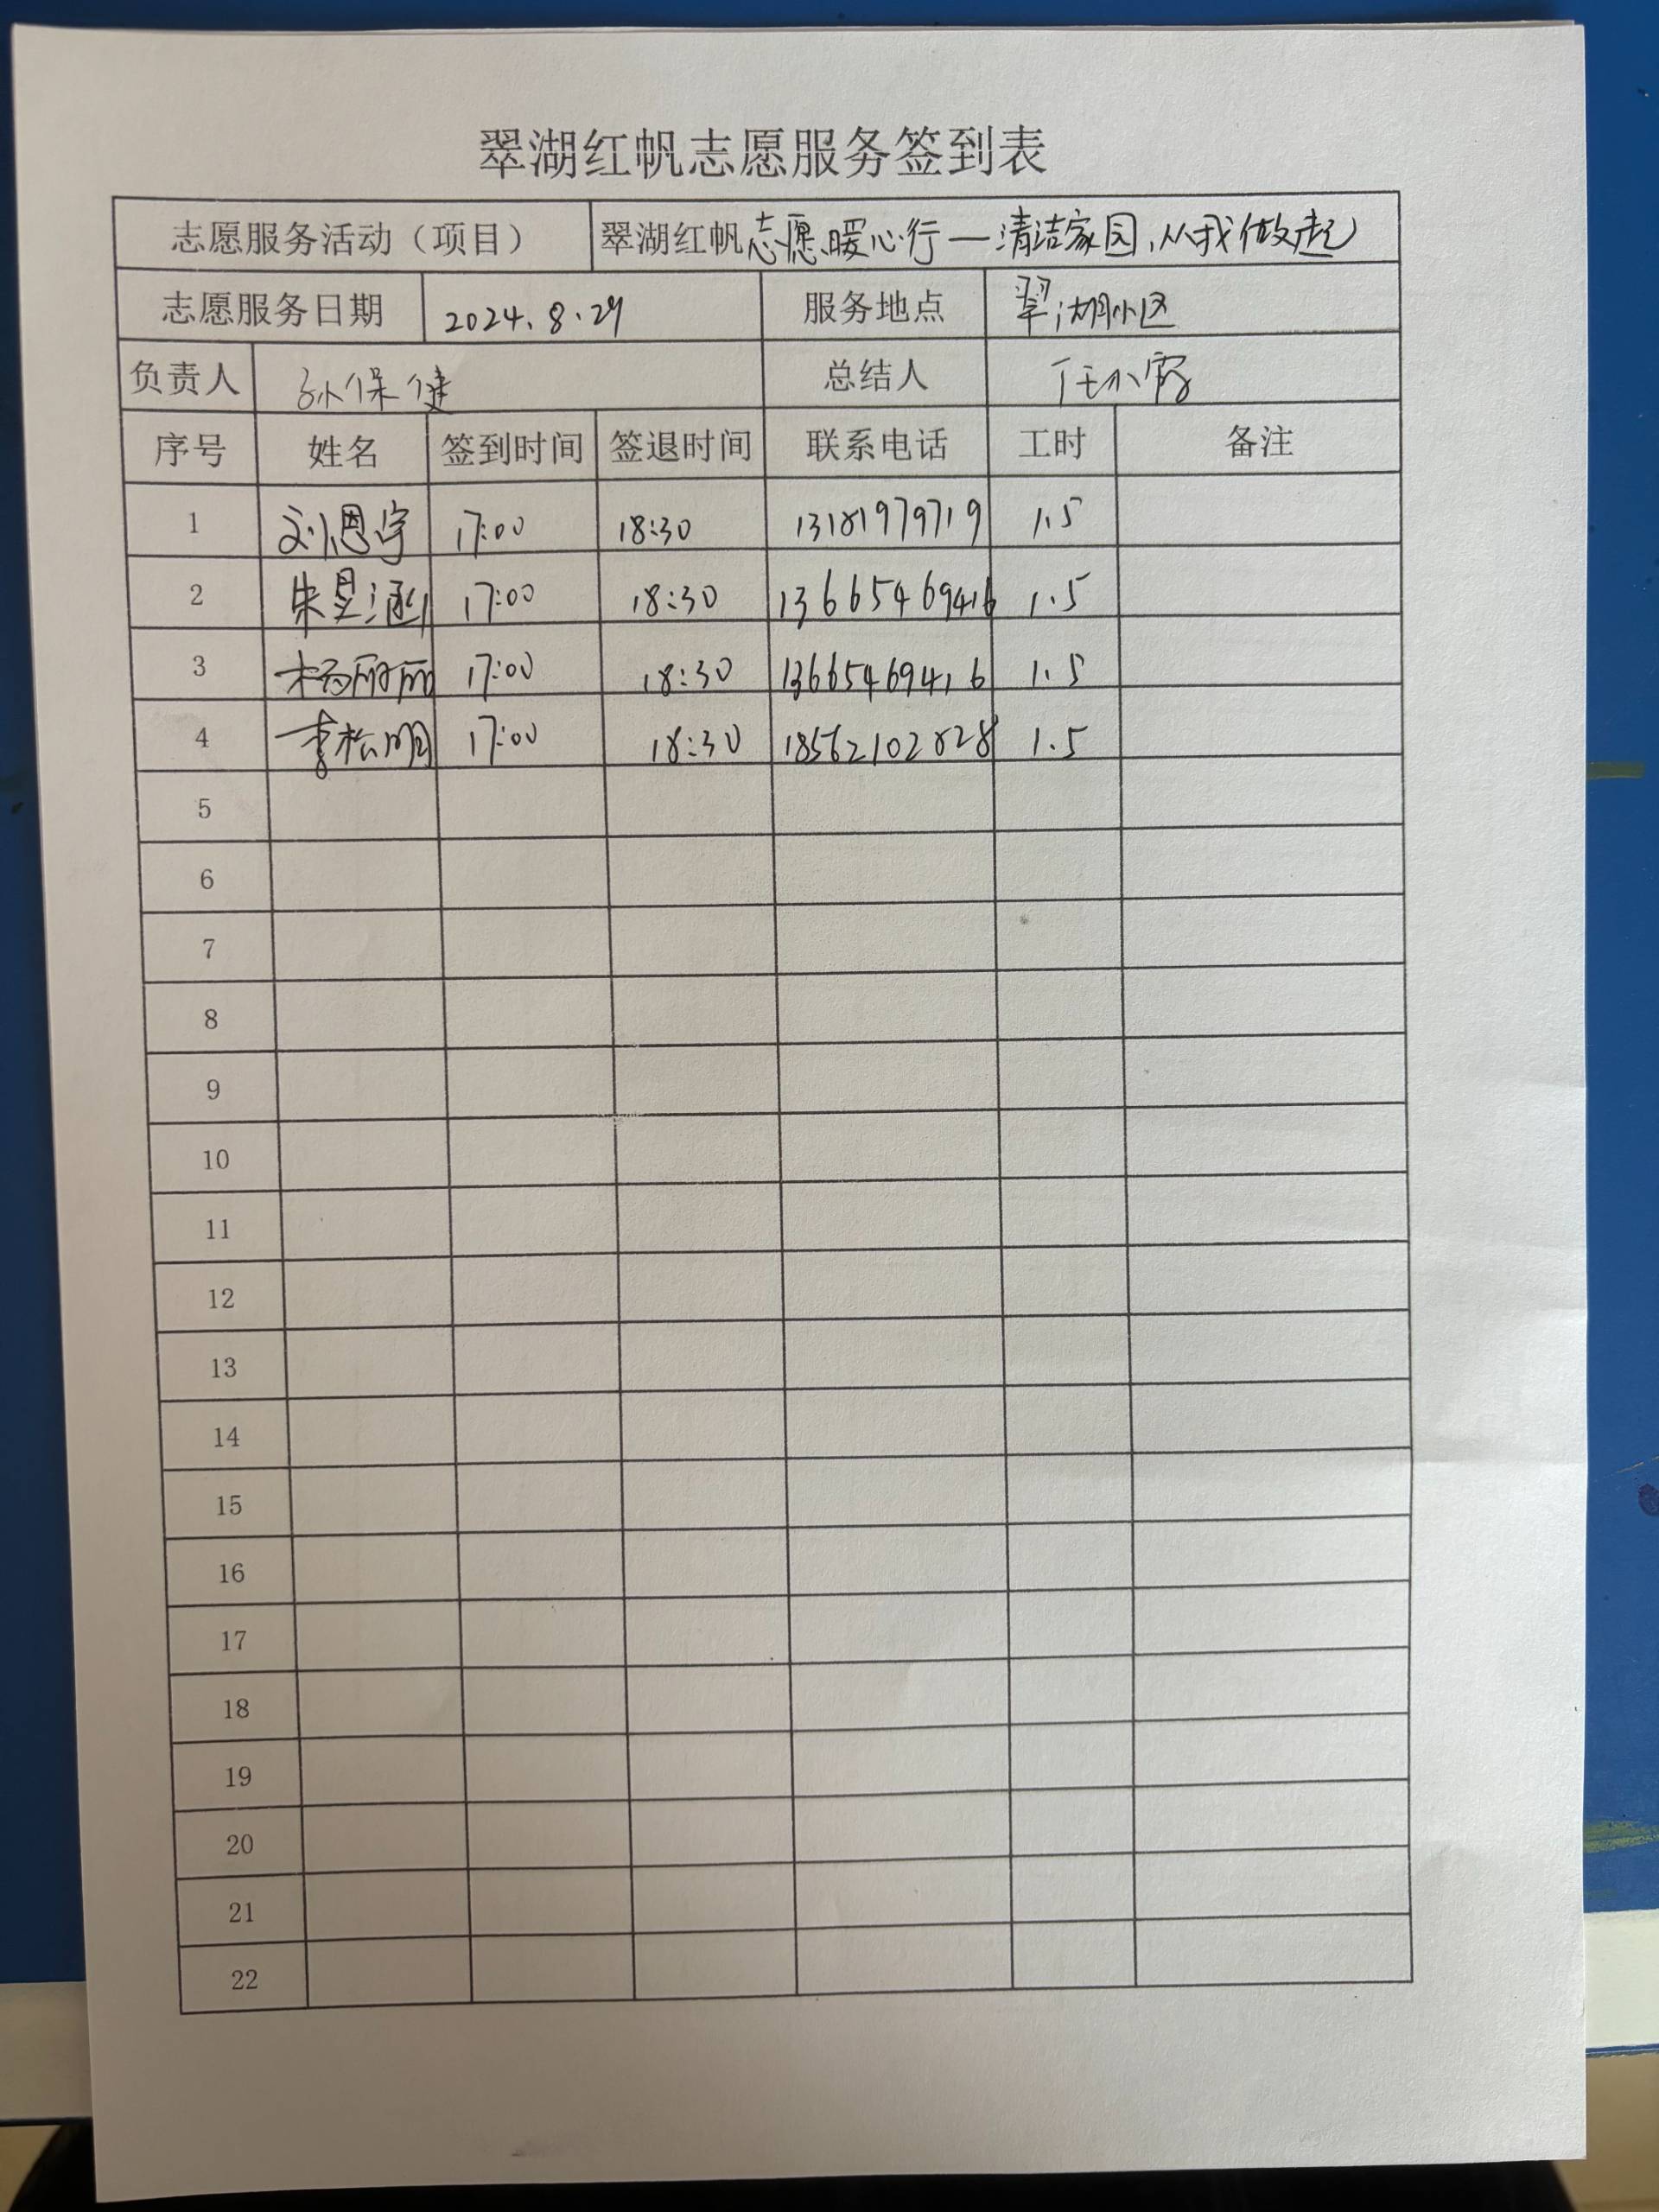 翠湖红帆志愿服务签到表
志愿服务活动（项目） 翠湖红帆志愿暖心行—清洁家园,从我做起
志愿服务日期 2024.8.29 服务地点 翠湖小区
负责人 孙保健 总结人 任小霞
序号 姓名 签到时间 签退时间 联系电话 工时 备注
1 刘恩宇 17:00 18:30 13181979719 1.5
2 朱昱涵 17:00 18:30 13665469416 1.5
3 杨丽丽 17:00 18:30 13665469416 1.5
4 李松明 17:00 18:30 18562102828 1.5
5
6
7
8
9
10
11
12
13
14
15
16
17
18
19
20
21
22